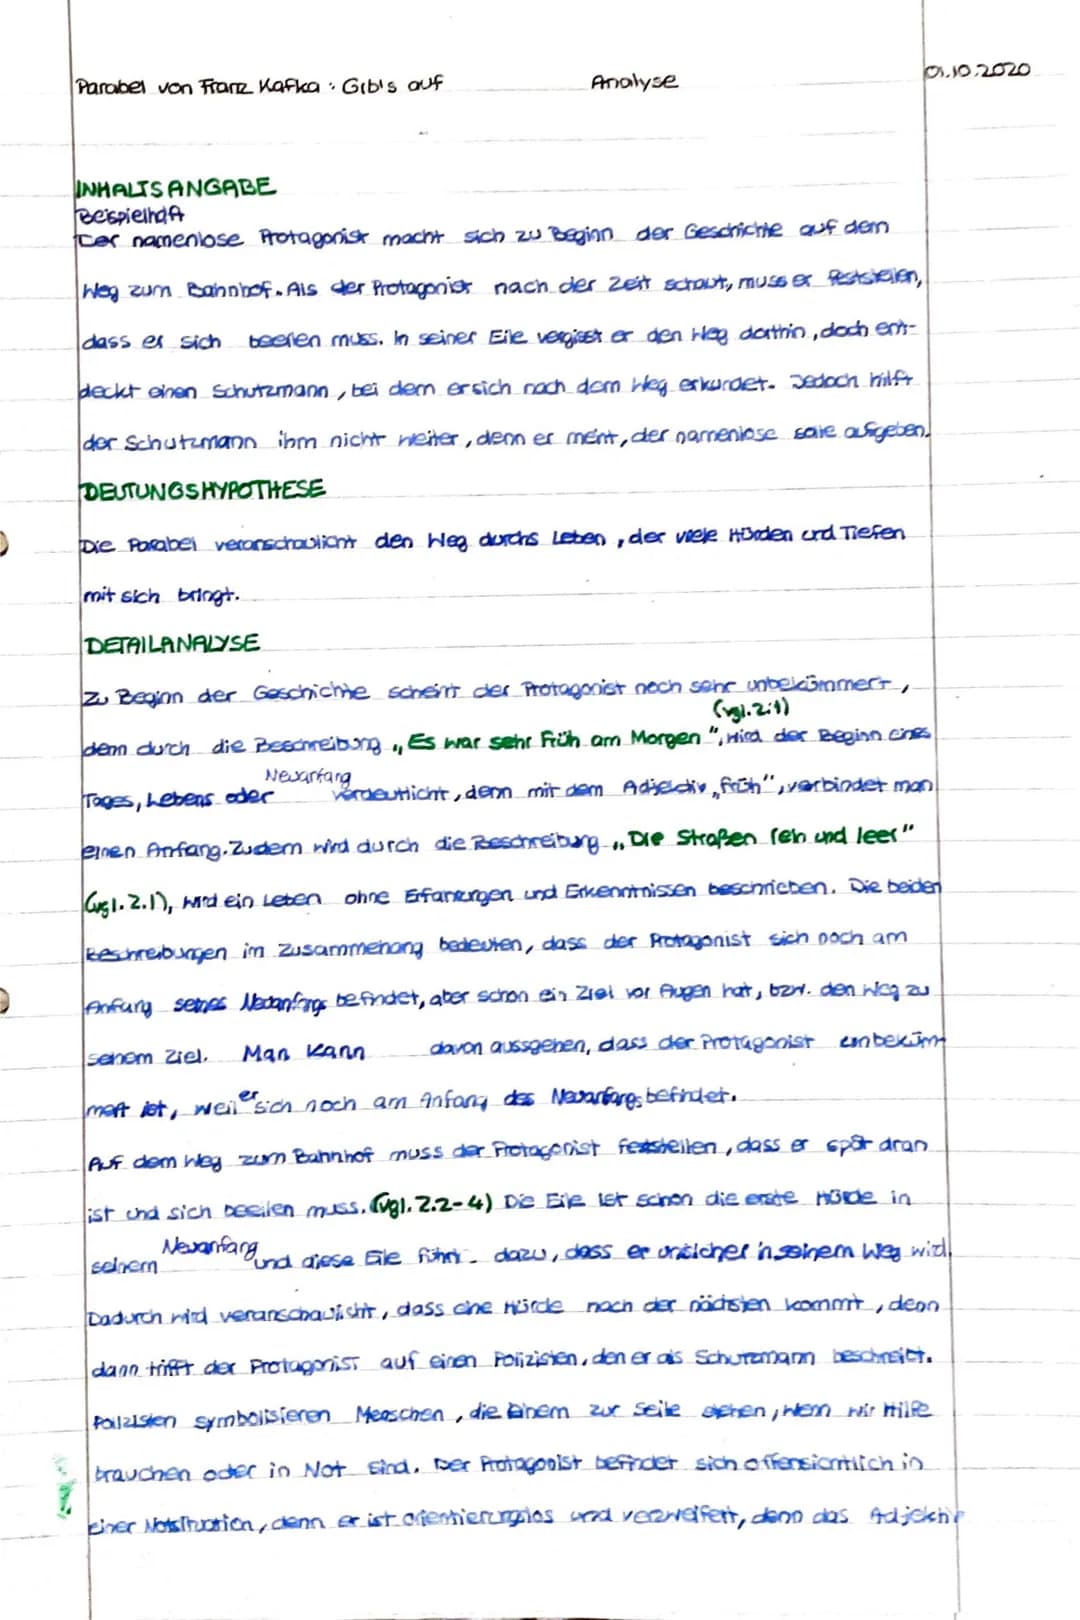 Parabel von Franz Kafka : Gib's auf Analyse 01.10.2020
INHALTSANGABE
Beispielhaft
Der namenlose Protagonist macht sich zu Beginn der Geschichte auf dem
Weg zum Bahnhof. Als der Protagonist nach der Zeit schaut, muss er feststellen,
dass er sich beeilen muss. In seiner Eile vergisst er den Weg dorthin, doch ent-
deckt einen Schutzmann, bei dem er sich nach dem Weg erkundet. Jedoch hilft
der Schutzmann ihm nicht weiter, denn er meint, der namenlose solle aufgeben.
DEUTUNGSHYPOTHESE
Die Parabel veranschaulicht den Weg durchs Leben, der viele Hürden und Tiefen
mit sich bringt.
DETAILANALYSE
Zu Beginn der Geschichte scheint der Protagonist noch sehr unbekümmert,
(vgl. Z.1)
denn durch die Beschreibung „Es war sehr früh am Morgen", wird der Beginn eines
Neuanfang
Tages, Lebens oder verdeutlicht, denn mit dem Adjektiv „früh", verbindet man
einen Anfang. Zudem wird durch die Beschreibung „Die Straßen rein und leer"
(vgl. Z.1), wird ein Leben ohne Erfahrungen und Erkenntnissen beschrieben. Die beiden
Beschreibungen im Zusammenhang bedeuten, dass der Protagonist sich noch am
Anfang seines Neuanfangs befindet, aber schon ein Ziel vor Augen hat, bzw. den Weg zu
seinem Ziel. Man kann davon aussgehen, dass der Protagonist unbeküm-
er
mert ist, weil sich noch am Anfang des Neuanfangs befindet.
Auf dem Weg zum Bahnhof muss der Protagonist feststellen, dass er spät dran
ist und sich beeilen muss. (vgl. Z.2-4) Die Eile ist schon die erste Hürde in
Neuanfang
seinem und diese Eile führt dazu, dass er unsicher in seinem Weg wird.
Dadurch wird veranschaulicht, dass eine Hürde nach der nächsten kommt, denn
dann trifft der Protagonist auf einen Polizisten, den er als Schutzmann beschreibt.
Polizisten symbolisieren Menschen, die einem zur Seite stehen, wenn wir Hilfe
brauchen oder in Not sind. Der Protagonist befindet sich offensichtlich in
einer Notsituation, denn er ist orientierungslos und verzweifelt, denn das Adjektiv